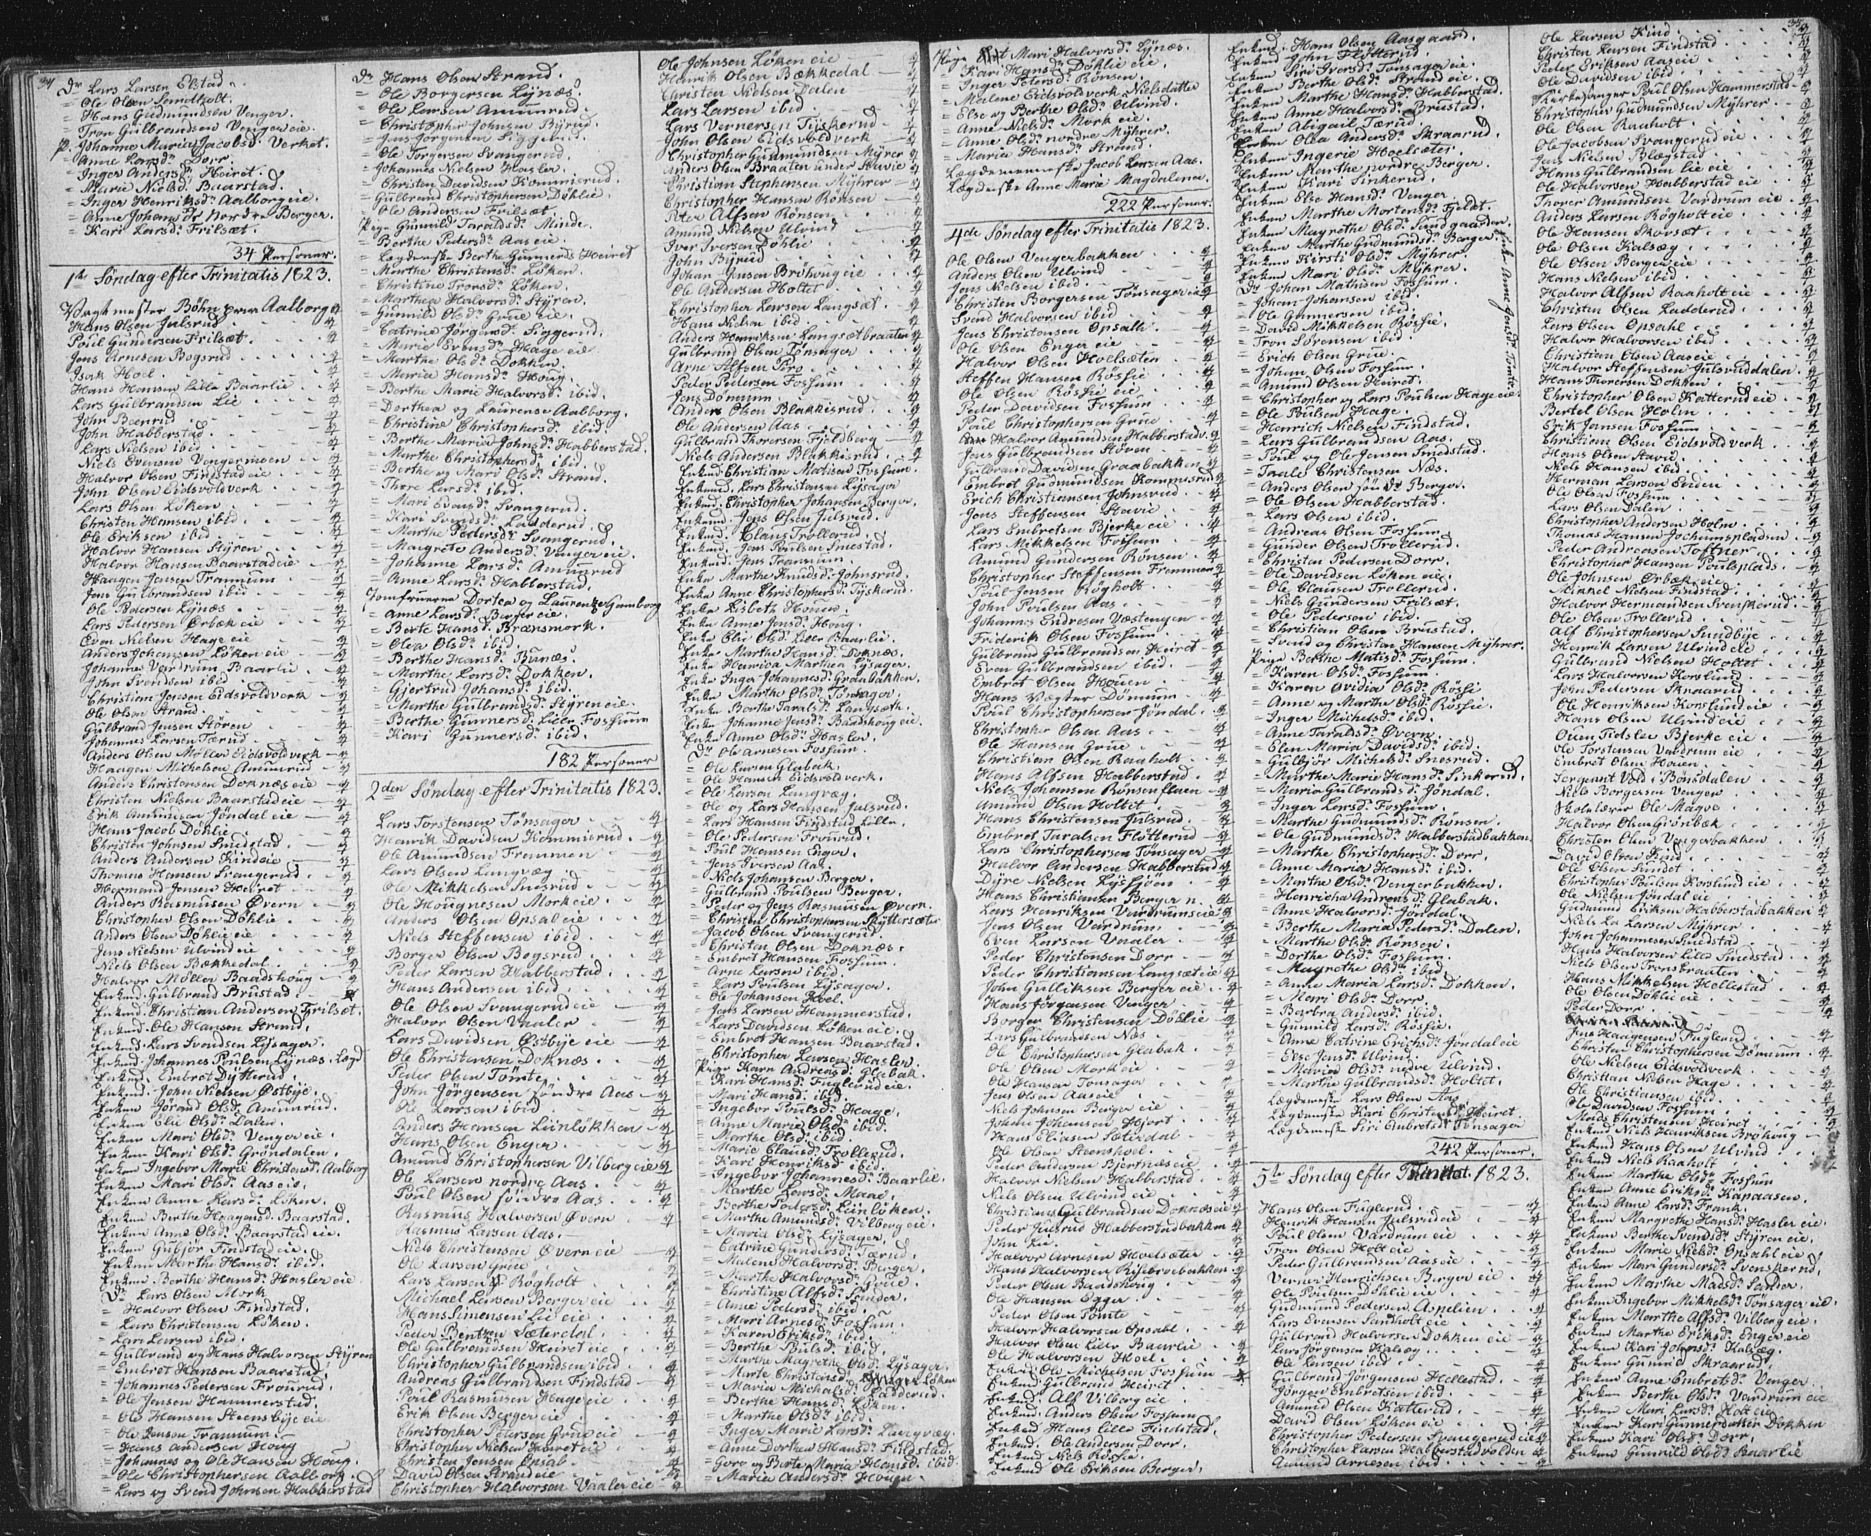 34
Dr Lars Larsen Elstad.
= Ole Olsen
= Hans Gudmundsen Venger.
= Tron Gulbrandsen Venger eie.
p. Johanne Maria Jacobsdr Verket.
= Anne Larsdr Dorr.
= Inger Andersdr Heiret.
= Marie Nielsdr Baarstad.
= Inger Henriksdr Aalborg eie.
= Anne Johansdr Nordre Berger.
= Kari Larsdr Frilsæt.
34 Personer.
1ste Søndag efter Trinitatis 1823.
Vagtmester Böhn Aalborg 4
Hans Olsen Julsrud 4
Poul Gundersen Frilsæt. 4
Jens Arnesen Bogsrud 4
Isak Hoel 4
Hans Hansen Lille Baarlie 4
Lars Gulbrandsen Lie 4
John Bænrud 4
John Habberstad 4
Lars Nielsen ibid 4
Niels Evensen Vengermoen 4
Halvor Olsen Finstad eie 4
John Olsen Eidsvoldverk 4
Lars Olsen Löken 4
Christen Hansen ibid 4
Ole Eriksen ibid 4
Halvor Hansen Styren 4
Halvor Hansen Baarstad eie 4
Haagen Jensen Trannum 4
Jens Gulbrandsen ibid 4
Ole Pedersen Lynæs 4
Lars Pedersen Ørbæk eie 4
Even Nielsen Hage eie 4
Anders Johansen Löken eie 4
Johannes Vardrum Baarlie 4
John Svendsen ibid 4
Christian Jensen Eidsvoldverk 4
Ole Olsen Strand 4
Gulbrand Jensen Stören 4
Johannes Larsen Tærud 4
Anders Olsen Möller Eidsvoldverk 4
Haagen Michelsen Amunrud 4
Anders Christensen Doknæs eie 4
Christen Nielsen Baarstad eie 4
Erik Amundsen Jöndal eie 4
Hans Jacob Döhlie 4
Christen Johnsen Smedstad 4
Anders Andersen Kind eie 4
Thomas Hansen Svangerud 4
Hermand Jensen Heiret 4
Anders Rasmusen Øvern 4
Christopher Olsen Döhlie 4
Anders Olsen Döhlie eie 4
Jens Nielsen Ulvind eie 4
Niels Olsen Bækkedal 4
Halvor Möller Baadshoug 4
Enkmd. Gulbrand Brustad 4
Enkmd. Christian Andersen Frilsæt.
Enkmd. Ole Hansen Strand.
Enkmd. Lars Svendsen Lysager.
Enkmd. Johannes Poulsen Lynæs. Legd
Enkmd. Embret Dytterud
Enkmd. John Nielsen Østbye.
Enken Jörand Olsdr Amunrud.
Enken Elie Olsdr Dalen.
Enken Mari Olsdr Venger eie.
Enken Kari Olsdr Gröndalen.
Enken Ingebor Marie Christensdr Aalborg
Enken Mari Olsdr Aas eie.
Enken Anne Larsdr Löken.
Enken Berthe Haagensdr Baarstad.
Enken Anne Olsdr Baarstad eie.
Enken Gubjör Finstad eie.
Enken Marthe Hansdr ibid.
Enken Berthe Hansdr Hasler eie.
Dr Lars Olsen Mork
= Halvor Olsen Findstad.
= Lars Christensen Löken.
= Lars Larsen ibid
= Gulbrand og Hans Halvorsen Styren
= Embret Hansen Baarstad,
= Johannes Pedersen Frönrud.
= Ole Jensen Hammerstad.
= Ole Hansen Steensbye eie
= Ole Jenson Trannum.
= Hans Andersen Houg
= Johannes og Ole Hansen Houg.
= Ole Christophersen Aalborg
= Lars og Svend Johnsen Habberstad
Dr Hans Olsen Strand.
= Ole Borgersen Lynæs.
= Ole Larsen Amunrud.
= Christopher Johnsen Byrud.
= Jens Jörgensen Siggerud.
= Ole Torgersen Svangerud.
= Johannes Nielsen Hasler.
= Christen Davidsen Kommierud.
= Gulbrand Christophersen Döhlie.
= Ole Andersen Frilsæt.
Pige Gunnild Taraldsdr Minde.
= Berthe Pedersdr Aas eie.
= Legdenske Berthe Gunnersdr Heiret
= Marthe Christensdr Löken.
= Christine Tronsdr Löken.
= Marthea Halvorsdr Styren.
= Gunnild Olsdr Grue eie.
= Catrine Jörgensdr Siggerud.
= Marie Evensdr Hage eie
= Marthe Olsdr Dokken.
= Maria Hansdr Houg.
= Berthe Marie Halvorsdr ibid.
= Dorthea og Laurense Aalborg.
= Christine Christophersdr ibid.
= Berthe Maria Johnsdr Habberstad.
= Marthe Christophersdr ibid.
= Berthe og Mari Olsdr Strand.
= Thore Larsdr ibid.
= Mari Evensdr Svangerud.
= Kari Svendsdr Ladderud.
= Marthe Pedersdr Svangerud.
= Margrete Andersdr Venger eie.
= Johanne Larsdr Amunrud
= Anne Larsdr Habberstad
Jomfruerne Dortea og Laurentze Gamborg
= Anne Larsdr Berger eie.
= Berte Hansdr Brænsmork.
= Olea Olsdr ibid.
= Berthe Hansdr Bunæs.
= Marthe Larsdr Dokken.
= Gjertrud Johansdr ibid.
= Marthe Gulbrandsdr Styren eie.
= Berthe Gunnersdr Lille Fossum
= Kari Gunnersdr ibid.
182 Personer
2den Søndag efter Trinitatis 1823.
Lars Torstensen Tönsager 4
Henrik Davidsen Kommierud 4
Ole Amundsen Fremmen 4
Lars Olsen Langvæg 4
Ole Mikkelsen Snesrud 4
Ole Hougnesen Mork eie 4
Anders Olsen Opsal eie 4
Niels Steffensen ibid 4
Borger Olsen Bogsrud 4
Peder Larsen Habberstad 4
Hans Andersen ibid 4
Ole Olsen Svangerud eie 4
Halvor Olsen Vaaler 4
Lars Davidsen Østbye eie 4
Ole Christensen Doknæs 4
Peder Olsen Tömte 4
John Jörgensen söndre Aas 4
Ole Larsson ibid 4
Anders Hansen Leinlökken 4
Hans Olsen Enger 4
Amund Christophersen Vilberg eie 4
Ole Larsen nordre Aas 4
Poul Olsen söndre Aas 4
Rasmus Halvorsen Øvern 4
Rasmus Larsen Aas.
Niels Christensen Øvern eie 4
Ole Larsen Grue 4
Lars Larsen Bögholt 4
Michael Larsen Berger eie 4
Hans Simensen Lie eie 4
Peder Bentzen Sæterdal 4
Ole Gulbrandsen Heiret eie 4
Christopher Gulbrandsen ibid 4
Andreas Gulbrandsen Findstad 4
Poul Rasmusen Hage eie 4
Erik Olsen Berger eie 4
Christopher Petersen Grue eie 4
Christopher Nielsen Heiret eie 4
Christen Jensen Opsal 4
David Olsen Strand eie 4
Christopher Halvorsen Vaaler eie 4
Ole Johnsen Löken eie 4
Henrik Olsen Bækkedal 4
Christen Nielsen Dalen 4
Lars Larsen ibid 4
Lars Vernersen Tyskerud 4
John Olsen Eidsvoldverk 4
Christopher Gudmundsen Myrer 4
Anders Olsen Braaten under Stavie 4
Christian Stephensen Myhrer 4
Christopher Hansen Rönsen 4
Peter Alfsen Rönsen 4
Amund Nielsen Ulvind 4
Iver Iversen Döhlie 4
John Byrud 4
Johan Jensen Bröhoug eie 4
Ole Andersen Holtet 4
Christopher Larsen Langsæt 4
Hans Nielsen ibid 4
Anders Henriksen Langsætbraaten 4
Gulbrand Olsen Tönsager 4
Arne Alfsen Piro 4
Peder Pedersen Fossum 4
Jens Dönnum 4
Anders Olsen Blakkisrud 4
Ole Andersen Aas 4
Gulbrand Thorersen Fjeldberg 4
Niels Andersen Blakkisrud 4
Enkmd. Christian Matisen Fossum.
Enkemd. Lars Christensen Lysager
Enkmd. Christopher Johansen Berger.
Enkmd. Jens Olsen Julsrud.
Enkmd. Claus Trollerud.
Enkmd. Jens Poulsen Smestad.
Enkmd. Jens Trannum.
Enke Marthe Knudsdr Johnsrud.
Enke Anne Christophersdr Tyskerud.
Enke Lisbeth Houen.
Enke Anne Jensdr Houg.
Enke Elie Olsdr Lille Baarlie.
Enke Marthe Hansdr Doknæs.
Enke Henrica Marthea Lysager.
Enke Inger Johannesdr Graabakken.
Enke Marthe Olsdr Tönsager.
Enke Berthe Taralsdr Langsæth.
Enke Johanne Jensdr Baadshoug eie.
Enke Anne Olsdr Hasler.
Dr Ole Arnesen Fossum.
= Ole Larsen Glabak.
= Ole Hansen Eidsvoldverk.
= Ole Larson Langvæg.
= Ole og Lars Hansen Julsrud.
= Lars Hansen Findstad Lille
= Ole Pedersen Frönrud.
= Poul Hansen Enger.
= Jens Iversen Aas.
= Niels Johansen Berger.
= Gulbrand Poulsen Berger.
= Peder og Jens Rasmusen Øvern.
= Christen Christophersen Skyttersæter
= Jacob Olsen Svangerud.
= Christen Olsen Doknæs.
= Embret Hansen Fossum.
= Arne Larsen ibid.
= Lars Poulsen Lysager.
= Ole Johansen Hoel.
= Jens Larsen Hammerstad.
= Lars Davidsen Löken eie.
= Embret Hansen Baarstad.
= Christopher Larsen Hasler.
Pige Karen Andreasdr Glabak.
= Kari Hansdr Fuglerud eie.
= Mari Hansdr ibid.
= Ingebor Poulsdr Hage.
= Anne Marie Olsdr ibid.
= Marthe Olsdr ibid.
= Marie Clausdr Trollerud.
= Kari Henriksdr ibid.
= Ingebor Johannesdr Baarlie.
= Marthe Larsdr Mane,
= Berthe Pedersdr Leinlöken.
= Marthe Amundsdr Vilberg eie.
= Maria Olsdr Lysager.
= Catrine Gundersdr Tærud.
= Malene Halvorsdr Berger.
= Marthe Halvorsdr Grue.
= Christine Alfsdr Sonder.
= Anne Pedersdr ibid.
= Mari Arnesdr Fossum.
= Karen Eriksdr ibid.
= Berthe Pulsdr ibid.
= Marthe Magrethe Olsdr Lysager.
= Marte Christensdr Löken
= Maria Michelsdr Ladderud.
= Berthe Hansdr Löken.
= Marthe Olsdr ibid.
= Inger Marie Larsdr Langvæg.
= Anne Dorthea Hansdr Fildstad.
= Gore og Berte Maria Hansdr ibid
= Maria Andersdr Houen
35
Pige Mari Halvorsdr Lynæs.
= Kari Hansdr Döhlie eie.
= Inger Petersdr Rönsen.
= Malene Eidsvoldverk Nielsdatter
= Else og Berthe Olsdr Ulvind.
= Anne Nielsdr Mork eie.
= Anne Olsdr nordre Myhrer.
= Maria Hansdr Strand.
Lægdemannske Jacob Larsen Aas.
Lægdenske Anne Marie Magdalena.
222 Personer.
4de Søndag efter Trinitatis 1823.
Ole Olsen Vengerbakken 4
Anders Olsen Ulvind 4
Jens Nielsen ibid 4
Christen Borgersen Tönsager eie 4
Svend Halvorsen ibid 4
Jens Christensen Opsahl 4
Ole Olsen Enger eie 4
Halvor Olsen Hoelsæter 4
Steffen Hansen Rössie 4
Ole Olsen Rössie eie 4
Peder Davidsen Fossum 4
Poul Christophersen Grue 4
Halvor Amundsen Habberstadv. 4
Jens Gulbrandsen Stören 4
Gulbrand Davidsen Graabakken 4
Embret Gudmundsen Kommisrud 4
Erich Christiansen Johnsrud 4
Jens Steffensen Stavie 4
Lars Embretsen Bjerke eie 4
Lars Mikkelsen Fossum 4
Amund Gundersen Rönsen 4
Christopher Staffensen Fremmen 4
Poul Jensen Rögholt 4
John Poulsen Aas 4
Johannes Endresen Væstengen 4
Friderik Olsen Fossum 4
Gulbrand Gulbrandsen Heiret 4
Even Gulbrandsen ibid 4
Embret Olsen Houen 4
Hans Vegter Dönnum 4
Poul Christophersen Jöndal 4
Christopher Olsen Aas 4
Ole Hansen Grue 4
Christian Olsen Raaholt 4
Hans Alfsen Habberstad 4
Niels Johansen Rönsenfluen 4
Amund Olsen Holtet 4
Hans Christensen Julsrud 4
Embret Taralsen Flötterud 4
Lars Christophersen Tönsager 4
Halvor Andersen Habberstad 4
Dyre Nielsen Lysjöen 4
Hans Christiansen Berger n. 4
Lars Henriksen Vardrum eie 4
Jens Olsen Vardrum 4
Even Larsen Vaaler 4
Peder Christensen Dorr 4
Peder Christiansen Langsæt eie 4
John Gulliksen Berger eie 4
Hans Jörgensen Venger 4
Borger Christensen Döhlie 4
Lars Gulbrandsen Næs 4
Ole Christophersen Glabak 4
Ole Olsen Mork eie 4
Ole Hansen Tonsager 4
Jens Olsen Aas eie 4
Niels Johnsen Berger eie 4
Johan Johansen Hjort 4
Hans Eliasen Sæterdal 4
Ole Olsen Steenshol 4
Peder Andersen Bjertnæs eie 4
Halvor Nielsen Habberstad 4
Niels Olsen Ulvind eie 4
Christian Gulbrandsen Doknæs eie 4
Peder Jensrud Habberstadbakken 4
John Lie 4
Halvor Arnesen Hoelsæter 4
Hans Halvorsen Risebrobakken 4
Peder Olsen Baadshoug 4
Ole Hansen Egger 4
Peder Olsen Tömte 4
Halvor Halvorsen Opsahl 4
Halvor Olsen Lille Baarlie 4
Ole Halvorsen Hoel 4
Enkmd. Ole Michelsen Fossum 4
Enkmd. Gulbrand Heiret.
Enkmd. Alf Vilberg eie
Enkmd. Anders Olsen Fossum.
Enkmd. Hans Lille Findstad.
Enkmd. Ole Andersen Dorr.
Enkmd. Niels Rössie.
Enkmd. Ole Eriksen Berger.
Enkmd. Hans Olsen Aasgaard.
Enkmd. John Flötterud.
Enken Siri Iversdr Tönsager eie.
Enken Berthe Olsdr Strand eie.
Enken Marthe Hansdr Habberstad.
Enken Anne Halvorsdr Brustad.
Enken Abigail Tærud.
Enken Olea Andersdr Skraarud.
Enken Ingerie Hoelsæter.
Enken Marthe nordre Berger.
Enken Kari Sinkerud.
Enken Else Hansdr Venger.
Enken Marthe Mortensdr
Enken Magrethe Olsdr Sundgaarden.
Enken Marthe Gudmundsdr Berger.
Enken Kirsti Olsdr Myhrer.
Enken Mari Olsdr Myhrer.
Dr Johan Mathisen Fossum.
= Johan Johansen ibid.
= Ole Gunnersen ibid.
= David Mikkelsen Rössie.
= Tron Sörensen ibid.
= Erich Olsen Grue.
= Johan Olsen Fossum.
= Amund Olsen Heiret.
= Christopher og Lars Poulsen Hage eie.
= Ole Poulsen Hage.
= Henrich Nielsen Findstad.
= Lars Gulbrandsen Aas.
= Poul og Ole Jensen Smedstad.
= Taale Christensen Næs.
= Anders Olsen söndr Berger.
= Ole Olsen Habberstad
= Lars Olsen ibid.
= Andreas Olsen Fossum
= Gunder Olsen Trollerud.
= Christen Pedersen Dorr.
= Ole Davidsen Löken eie.
= Ole Clausen Trollerud.
= Niels Gundersen Frilsæt.
= Ole Pedersen ibid.
= Christian Olsen Brustad.
= Svend og Christen Hansen Myhrer.
Pige Berthe Matisdr Fossum.
= Karen Olsdr Fossum.
= Karen Ovidia Olsdr Rössie
= Anne og Marthe Olsdr Rössie.
= Inger Michelsdr ibid.
= Anne Taraldsdr Øvern.
= Elen Maria Davidsdr ibid.
= Gulbjör Michelsdr Snesrud.
= Marthe Marie Hansdr Sinkerud.
= Maria Gulbrandsdr Jöndal.
= Inger Larsdr Fossum.
= Marthe Gudmundsdr Rönsen.
= Ole Gudmundsdr Habberstadbakken
= Marthe Christophersdr Dorr.
= Anne Maria Hansdr ibid.
= Marthe Olsdr Vengerbakken.
= Henricha Andreasdr Glabak.
= Anne Halvorsdr Jöndal.
= Berthe Maria Pedersdr Dalen.
= Marthe Olsdr Rönsen.
= Dorthe Olsdr Fossum.
= Magrethe Olsdr ibid
= Anne Maria Larsdr Dokken.
= Mari Olsdr Dorr.
= Barbra Andersdr ibid.
= Gunnild Larsdr Rössie.
= Anne Catrine Erichsdr Jöndal eie
= Else Jensdr Ulvind.
= Maria Olsdr nedre Ulvind.
= Marthe Gulbrandsdr Holtet.
Lægdemske Lars Olsen Aas
Lægdemske Kari Christensdr Heiret.
Legdemske Siri Embretsdr Tönsager
242 Personer.
5te Søndag efter Trinitat. 1823.
Hans Olsen Fuglerud 4
Henrik Hansen Julsrud eie 4
Poul Olsen Vardrum eie 4
Tron Olsen Holt eie 4
Peder Gulbrandsen Aas eie 4
Verner Henrichsen Berger eie 4
Ole Poulsen Döhlie eie 4
Gudmund Pedersen Aspelien 4
Lars Evensen Sandholt eie 4
Gulbrand Halvorsen Dokken eie 4
Lars Jörgensen Kalsøg 4
Ole Larsen ibid 4
Gulbrand Jörgensen Hellestad 4
Jörgen Embretsen ibid 4
Amund Olsen Katterud 4
David Olsen Löken eie 4
Christopher Pedersen Svangerud eie 4
Christopher Larsen Habberstadvolden 4
Amund Arnesen ibid 4
Enk. Anne Jensdr Tömte
Ole Larsen Kind 4
Christen Larsen Findstad 4
Peder Eriksen Aas eie 4
Ole Davidsen ibid 4
Kirkesanger Poul Olsen Hammerstad 4
Christopher Gudmundsen Myhrer 4
Ole Olsen Raaholt 4
Ole Jacobsen Svangerud eie 4
Jens Nielsen Blegstad 4
Hans Gulbrandsen Lie eie 4
Ole Halvorsen Habberstad eie 4
Thorer Amundsen Vardrum eie 4
Anders Larsen Bögholt eie 4
Hans Jensen Skovsæt 4
Ole Olsen Kalsøg 4
Ole Olsen Berger eie 4
Hans Nielsen ibid 4
Halvor Alfsen Raaholt eie 4
Christen Olsen Ladderud 4
Lars Olsen Opsahl 4
Halvor Halvorsen ibid 4
Christian Olsen Aas eie 4
Halvor Steffensen Julsruddalen 4
Hans Thoresen Dokken 4
Christopher Olsen Katterud eie 4
Bertel Olsen Holm 4
Erik Jansen Fossum 4
Christian Olsen Eidsvoldverk 4
Hans Olsen Stavie 4
Niels Hansen ibid 4
Herman Larson Enden 4
Ole Olsen Fossum 4
Lars Olsen Dalen 4
Christopher Andersen Holm 4
Thomas Hansen Jochumspladsen 4
Peder Andreasen Toftner 4
Christopher Hansen Poulsplads 4
Ole Johnsen Ørbæk eie 4
Mikkel Nielsen Findstad 4
Halvor Hermandsen Svenskerud 4
Ole Olsen Trollerud 4
Alf Christophersen Sundbye 4
Henrik Larsen Ulvind eie 4
Gulbrand Nielsen Holtet 4
Lars Halvorsen Korslund 4
John Pedersen Skraarud 4
Ole Henriksen Korslund eie 4
Hans Olsen Ulvind eie 4
Ouen Tidsler Bjerke eie 4
Ole Torstensen Vardrum eie 4
Embret Olsen Houen 4
Sergeant Vold i Bonsdalen 4
Niels Borgersen Venger 4
Skolelærer Ole Magvo 4
Halvor Olsen Grönbæk 4
Christen Olsen Vengerbakken 4
David Olsen Kind 4
Ole Olsen Sundet 4
Christopher Poulsen Korslund eie 4
Ole Nielsen Jöndal eie 4
Gudmund Eriksen Habberstadbakken 4
Niels La Larsen Myhrer 4
John Johannesen Smedstad 4
Hans Halvorsen Lille Smedstad 4
Niels Olsen Tronsbraaten 4
Hans Mikkelsen Hellestad 4
Ole Olsen Döhlie eie 4
Peder Dorr 4
Jens Haagensen Fuglerud 4
Christen Christophersen Dönnum 4
Ole Nielsen Eidsvolverk 4
Christian Nielsen Hage 4
Ole Christiansen ibid 4
Ole Davidsen Fossum 4
Mads Christensen Heiret 4
Enkmd Niels Henriksen Bröhoug 4
Enkmd Hans Olsen Ulvind
Enkmd Niels Raaholt
Enken Marthe Olsdr Fossum
Enken Anne Eriksdr Kanaasen.
Enken Anne Larsdr Frank.
Enken Margrethe Hansdr Hasler eie.
Enken Berthe Svendsdr Styren eie.
Enken Marie Nielsdr Opsahl eie
Enken Mari Gundersdr Svenskerud.
Enken Marthe Madsdr Sander.
Enken Ingebor Mikkelsdr Tönsager eie.
Enken Marthe Alfsdr Vilberg eie.
Enken Marthe Eriksdr Enger eie
Enken Kari Johnsdr Kalsæg.
Enken Gunnild Skraarud.
Enken Anne Embretsdr Venger.
Enken Berthe Olsdr Vardrum eie
Enken Mari Larsdr Holt eie
Enken Kari Gunnersdatter Dokken
Enken Kari Olsdr Dorr.
Enken Gunnild Olsdr Baarlie